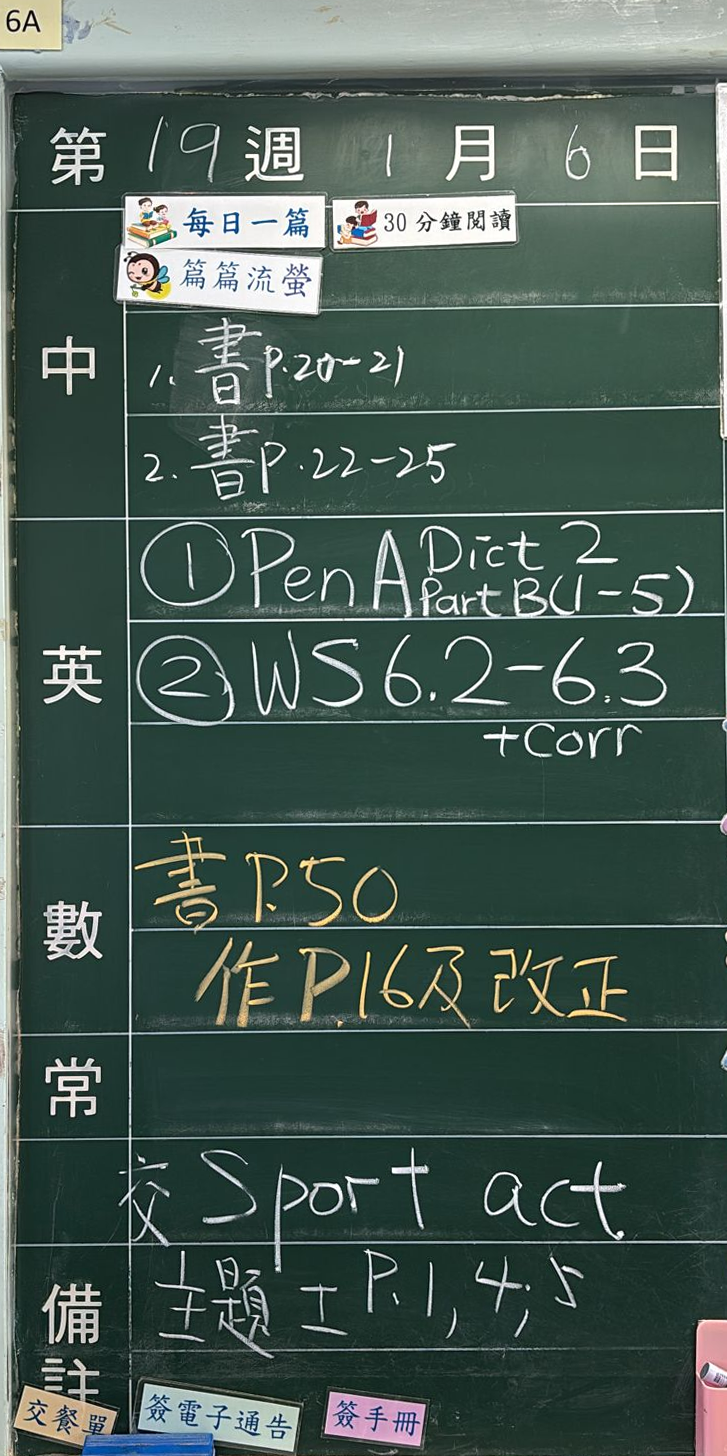 6A
第 19 週 1 月 6 日
每日一篇 30分鐘閱讀
篇篇流螢
中
1. 書P.20-21
2. 書P.22-25
英
① Pen A Dict 2
Part B(1-5)
② WS 6.2-6.3
+corr
數
書 P.50
作 P.16及改正
常
交 Sport act
備註
主題 工 P.1, 4, 5
交餐單 簽電子通告 簽手冊